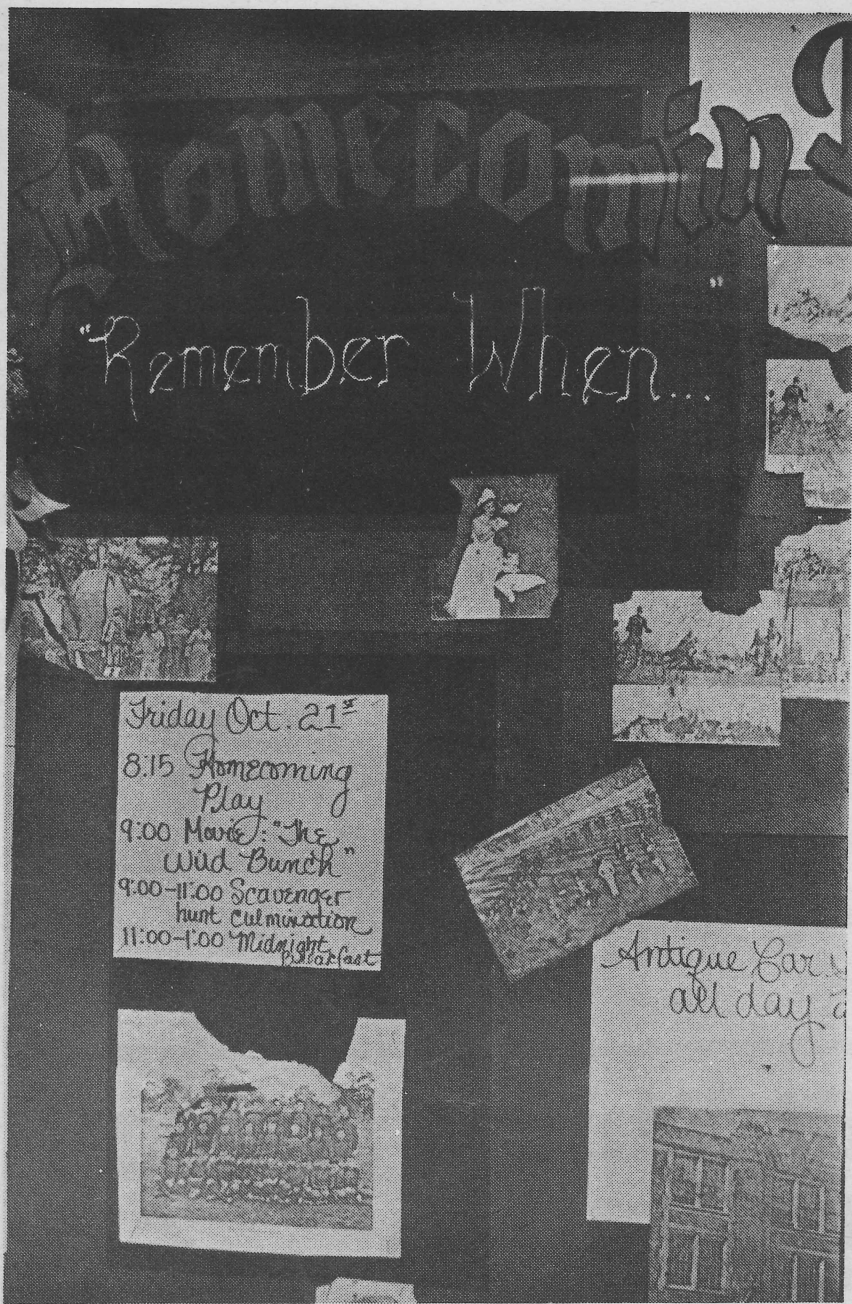 Homecoming
"Remember When..."
Friday Oct. 21st
8:15 Homecoming
Play
9:00 Movie: "The
Wild Bunch"
9:00-11:00 Scavenger
hunt culmination
11:00-1:00 Midnight
Breakfast
Antique Car
all day